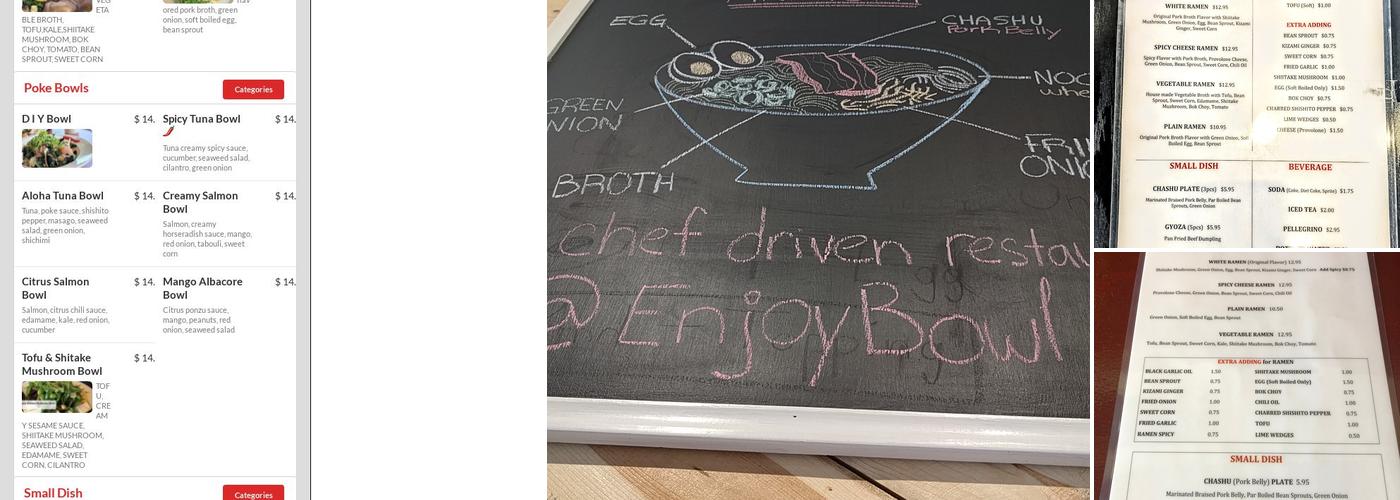 ETA
BLE BROTH,
TOFU,KALE,SHIITAKE
MUSHROOM, BOK
CHOY, TOMATO, BEAN
SPROUT, SWEET CORN
ored pork broth, green
onion, soft boiled egg,
bean sprout
Poke Bowls
Categories
D I Y Bowl $ 14.
Spicy Tuna Bowl $ 14.
Tuna creamy spicy sauce,
cucumber, seaweed salad,
cilantro, green onion
Aloha Tuna Bowl $ 14.
Tuna, poke sauce, shishito
pepper, masago, seaweed
salad, green onion,
shichimi
Creamy Salmon $ 14.
Bowl
Salmon, creamy
horseradish sauce, mango,
red onion, tabouli, sweet
corn
Citrus Salmon $ 14.
Bowl
Salmon, citrus chili sauce,
edamame, kale, red onion,
cucumber
Mango Albacore $ 14.
Bowl
Citrus ponzu sauce,
mango, peanuts, red
onion, seaweed salad
Tofu & Shitake $ 14.
Mushroom Bowl
TOF
U,
CRE
AM
Y SESAME SAUCE,
SHIITAKE MUSHROOM,
SEAWEED SALAD,
EDAMAME, SWEET
CORN, CILANTRO
Small Dish
Categories
EGG
CHASHU
Pork Belly
BROTH
chef driven
@ EnjoyBowl
WHITE RAMEN $12.95
Original Pork Broth Flavor with Shiitake
Mushroom, Green Onion, Egg, Bean Sprout, Kizami
Ginger, Sweet Corn
SPICY CHEESE RAMEN $12.95
Spicy Flavor with Pork Broth, Provolone Cheese,
Green Onion, Bean Sprout, Sweet Corn, Chili Oil
VEGETABLE RAMEN $12.95
House made Vegetable Broth with Tofu, Bean
Sprout, Sweet Corn, Edamame, Shiitake
Mushroom, Bok Choy, Tomato
PLAIN RAMEN $10.95
Original Pork Broth Flavor with Green Onion, Soft
Boiled Egg, Bean Sprout
TOFU (Soft) $1.00
EXTRA ADDING
BEAN SPROUT $0.75
KIZAMI GINGER $0.75
SWEET CORN $0.75
FRIED GARLIC $1.00
SHIITAKE MUSHROOM $1.00
EGG (Soft Boiled Only) $1.50
BOK CHOY $0.75
CHARRED SHISHITO PEPPER $0.75
LIME WEDGES $0.50
CHEESE (Provolone) $1.50
SMALL DISH
CHASHU PLATE (3pcs) $5.95
Marinated Braised Pork Belly, Par Boiled Bean
Sprouts, Green Onion
GYOZA (5pcs) $5.95
Pan Fried Beef Dumpling
BEVERAGE
SODA (Coke, Diet Coke, Sprite) $1.75
ICED TEA $2.00
PELLEGRINO $2.95
WHITE RAMEN (Original Flavor) 12.95
Shiitake Mushroom, Green Onion, Egg, Bean Sprout, Kizami Ginger, Sweet Corn Add Spicy $0.75
SPICY CHEESE RAMEN 12.95
Provolone Cheese, Green Onion, Bean Sprout, Sweet Corn, Chili Oil
PLAIN RAMEN 10.50
Green Onion, Soft Boiled Egg, Bean Sprout
VEGETABLE RAMEN 12.95
Tofu, Bean Sprout, Sweet Corn, Kale, Shiitake Mushroom, Bok Choy, Tomato
EXTRA ADDING for RAMEN
BLACK GARLIC OIL 1.50 SHIITAKE MUSHROOM 1.00
BEAN SPROUT 0.75 EGG (Soft Boiled Only) 1.50
KIZAMI GINGER 0.75 BOK CHOY 0.75
FRIED ONION 1.00 CHILI OIL 1.00
SWEET CORN 0.75 CHARRED SHISHITO PEPPER 0.75
FRIED GARLIC 1.00 TOFU 1.00
RAMEN SPICY 0.75 LIME WEDGES 0.50
SMALL DISH
CHASHU (Pork Belly) PLATE 5.95
Marinated Braised Pork Belly, Par Boiled Bean Sprouts, Green Onion